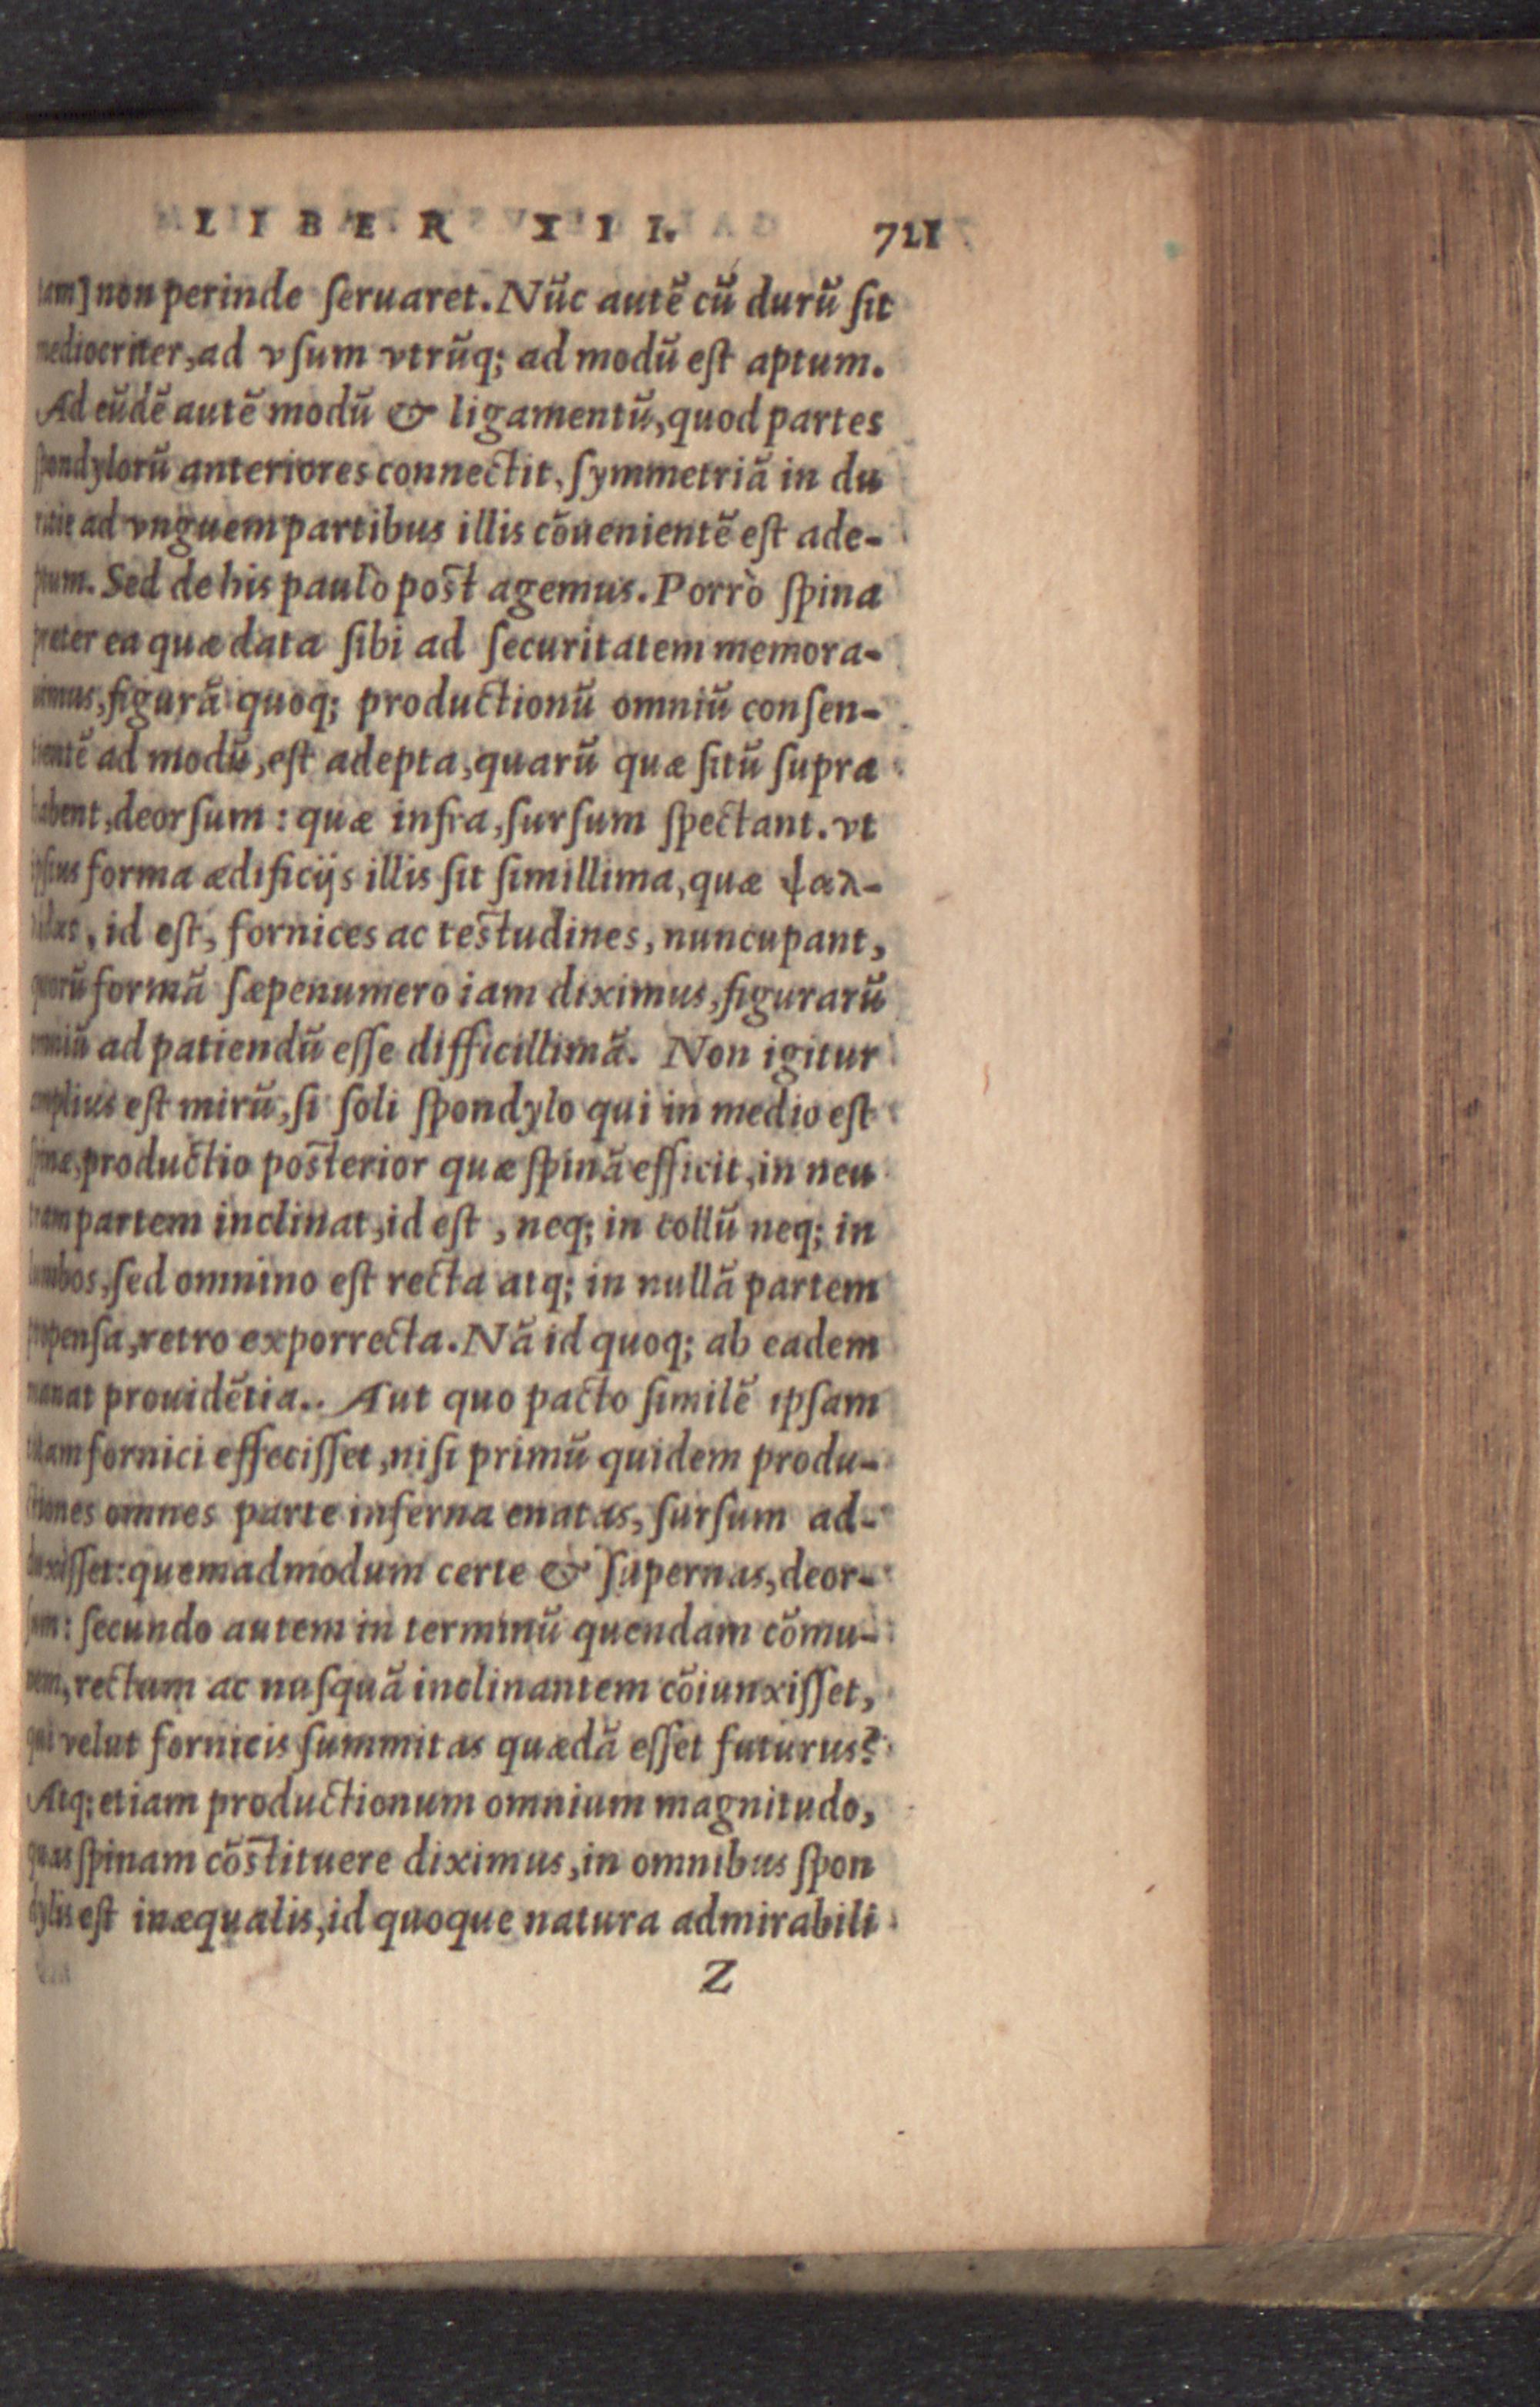 LIBER III. 721
non perinde ſeruaret. Nūc autē cū durū ſit
mediocriter, ad vſum vtrūq; ad modū eſt aptum.
Ad eūdē autē modū & ligamentū, quod partes
ſpondylorū anteriores connectit, ſymmetriā in du
ad vnguem partibus illis cōuenientē eſt ade-
ptum. Sed de his paulò poſt agemus. Porrò ſpina
preter ea quæ data ſibi ad ſecuritatem memora-
uimus, figurā quoq; productionū omniū conſen-
tientē ad modū, eſt adepta, quarū quæ ſitū ſupra
habent, deorſum: quæ infra, ſurſum ſpectant. vt
ipſius forma ædificijs illis ſit ſimillima, quæ ψαλ-
id eſt, fornices ac teſtudines, nuncupant,
quorū formā ſæpenumero iam diximus, figurarū
omniū ad patiendū eſſe difficillimā. Non igitur
amplius eſt mirū, ſi ſoli ſpondylo qui in medio eſt
ſpinæ, productio poſterior quæ ſpinā efficit, in neu
tram partem inclinat, id eſt, neq; in collū neq; in
lumbos, ſed omnino eſt recta atq; in nullā partem
propenſa, retro exporrecta. Nā id quoq; ab eadem
manat prouidētia.. Aut quo pacto ſimilē ipſam
totam fornici effeciſſet, niſi primū quidem produ-
ctiones omnes parte inferna enatas, ſurſum ad-
duxiſſet: quemadmodum certe & ſupernas, deor-
ſum: ſecundo autem in terminū quendam cōmu-
nem, rectam ac nuſquā inclinantem cōiunxiſſet,
qui velut fornicis ſummitas quædā eſſet futurus?
Atq; etiam productionum omnium magnitudo,
quas ſpinam cōſtituere diximus, in omnibus ſpon
dylis eſt inæqualis, id quoque natura admirabili
Z